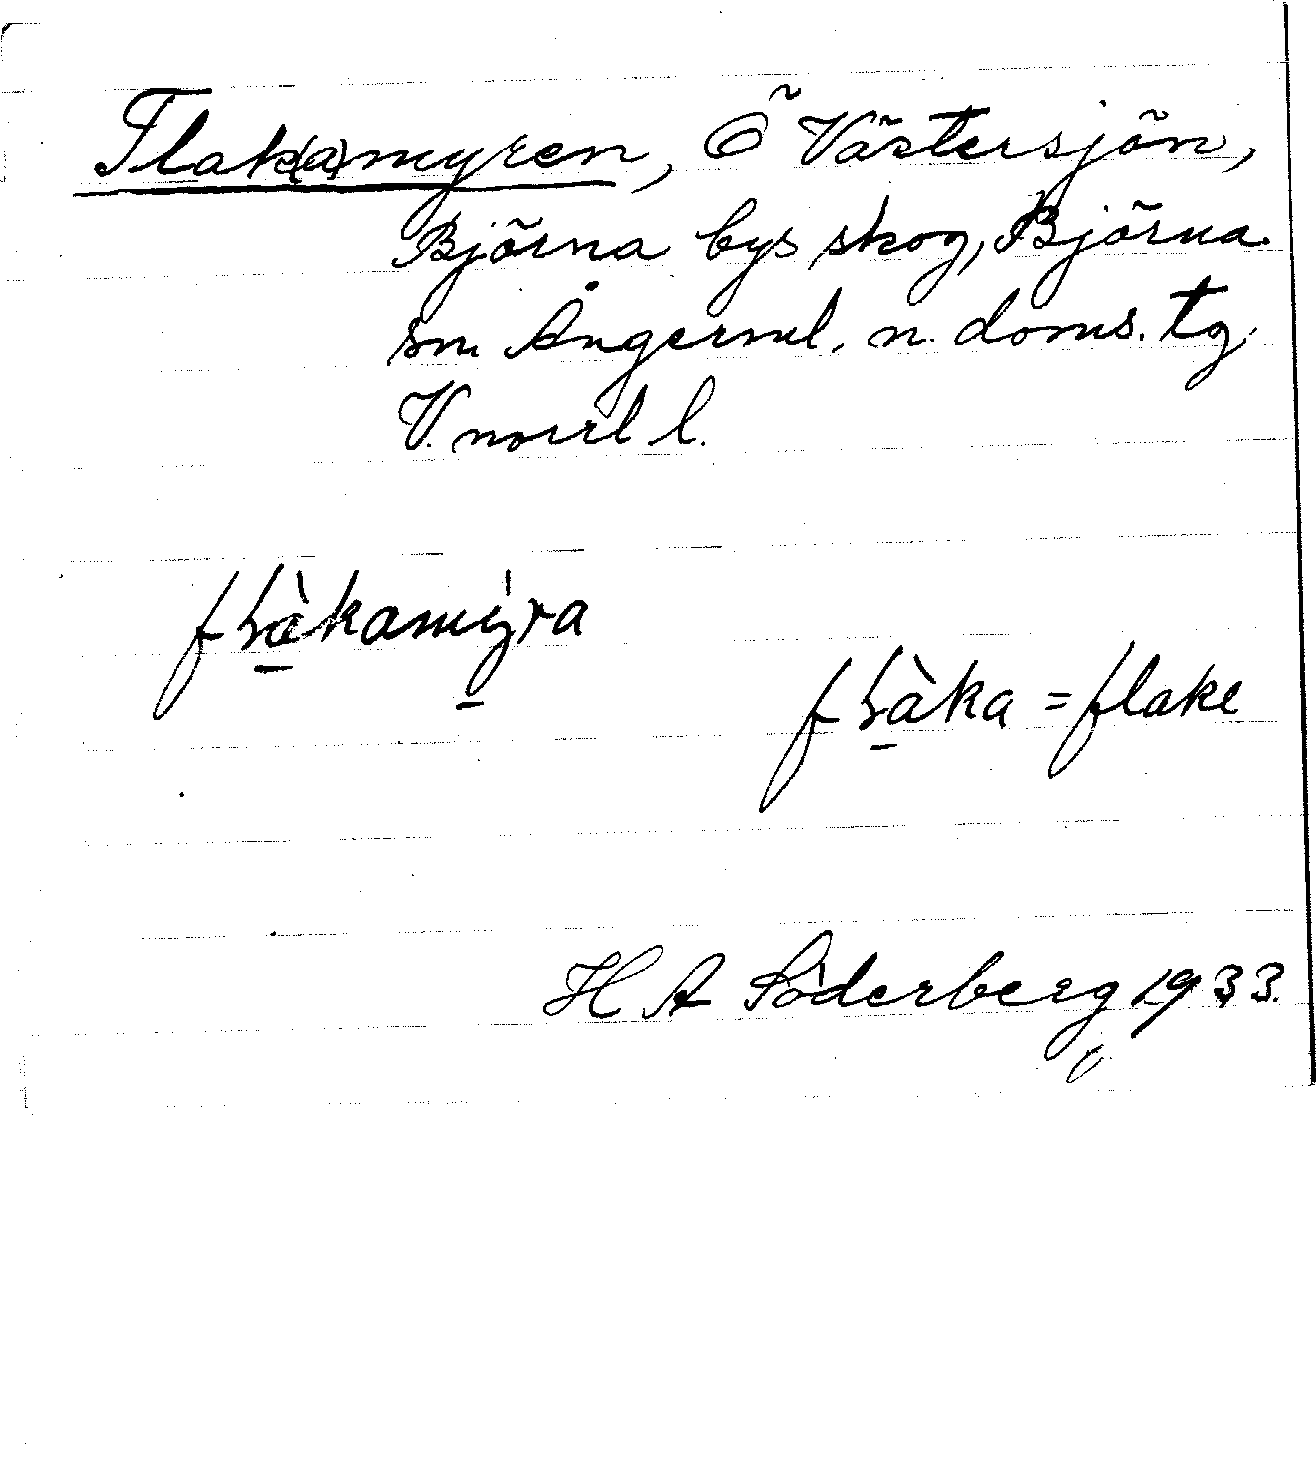 Flak(a)myren, Ö Västersjön,
Björna bys skog, Björna
sn. Ångerml. n. doms. tg
V. norrl l.
fɽàkamýra
fɽàka = flake
H A Söderberg 1933.